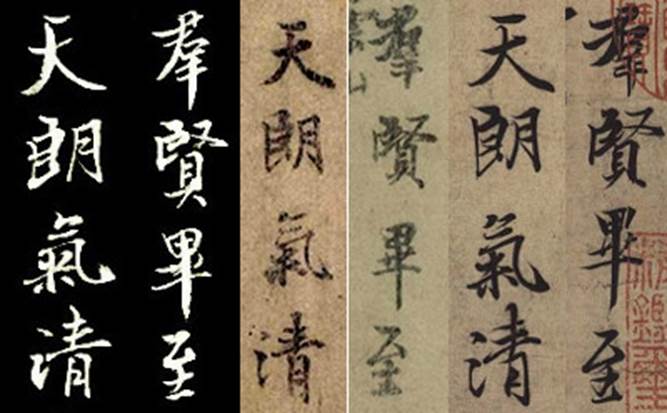 羣賢畢至
天朗氣清
羣賢畢至
天朗氣清
羣賢畢至
天朗氣清